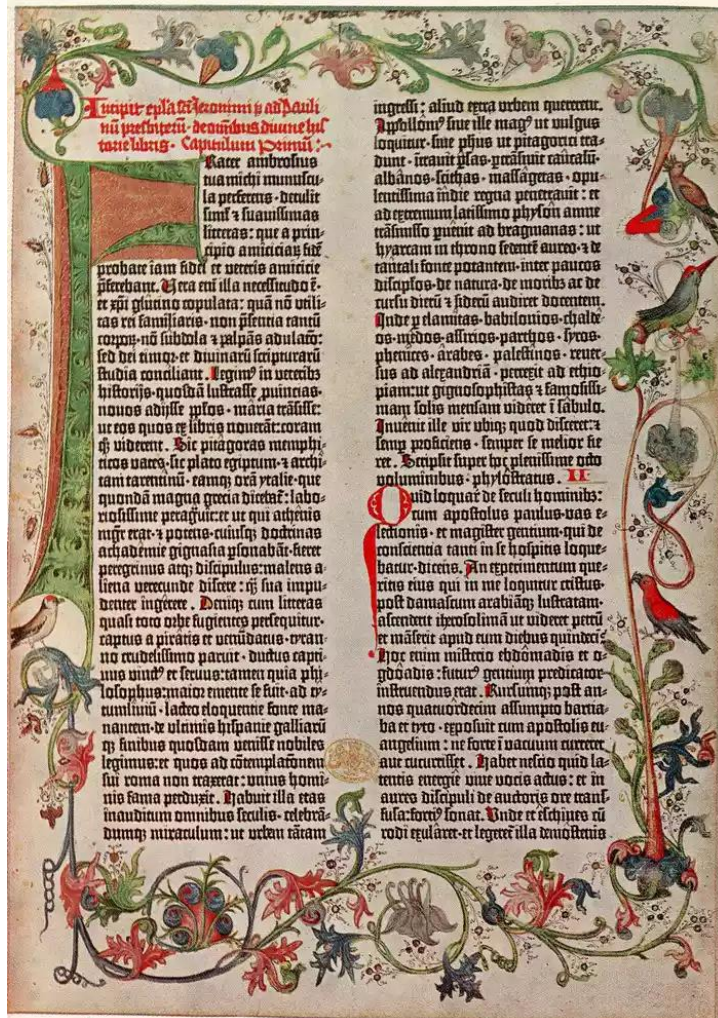 Incipit epl̃a sc̃i Jeronimi p̃ ad Pauli
nũ presbiterũ · de omĩbus diuine his-
torie libris · Capitulum Primũ :-
Frater ambrosius
tua michi munuscu-
la perferens · detulit
simł ⁊ suauissimas
litteras: que a prin-
cipio amiciciaꝝ fidẽ
probate iam fidei et veteris amicicie
p̃ferebant. Uera enĩ illa necessitudo ẽ·
et xp̃i glutino copulata: quã nõ utili-
tas rei familiaris · non p̃sentia tantũ
corporꝫ · nõ subdola ⁊ palpãs adulacõ:
sed dei timor · et divinarũ scripturarũ
studia conciliant. Legimꝰ in veteribꝫ
historijs · quosdã lustrasse ꝓuincias·
nouos adijsse pp̃los · maria trãsisse:
ut eos quos ex libris nouerãt: coram
qꝫ viderent. Sic pitagoras memphi-
ticos vates · sic plato egiptum · ⁊ archi-
tam tarentinũ · eamqꝫ orã ytalie · que
quondã magna grecia diceƀat: labo-
riosissime peragiuit: et ut qui athenis
mgr̃ erat · ⁊ potens · cuiusqꝫ doctrinas
achademie gignasia ꝑsonabãt · fieret
peregrinus atqꝫ discipulus: malens a-
liena verecunde discere: qꝫ sua impu-
denter ingerere. Deniqꝫ cum litteras
quasi toto orbe fugientes persequitur·
captus a piratis et venũdatus · tyran-
no crudelissimo paruit · ductus capti-
uus vinctꝰ et seruus: tamen quia phi-
losophus: maior emente se fuit · ad ty-
tumliuiũ · lacteo eloquentie fonte ma-
nantem · de vltimis hispanie galliarũ
qꝫ finibus quosdam venisse nobiles
legimus: et quos ad cõtemplationem
sui roma non traxerat: vnius homi-
nis fama perduxit. Habuit illa etas
inauditum omnibus seculis · celebrã-
dumqꝫ miraculum: ut vrbem tãtam
ingressi: aliud extra vrbem quererent.
Appollonꝰ siue ille magꝰ ut vulgus
loquitur · siue phũs ut pitagorici tra-
dunt · ĩtrauit p̃sas · ꝑtrãsiuit caucasũ·
albãnos · scithas · massagetas · opu-
lentissima indie regna penetrauit: et
ad extremum latissimo physon amne
trãsmisso ꝑuenit ad bragmanas: ut
hyarcam in throno sedentẽ aureo · ⁊ de
tantali fonte potantem · inter paucos
discip̃los · de natura · de moribꝫ ac de
cursu dierũ ⁊ siderũ audiret docentem.
Inde ꝑ elamitas · babilonios · chalde-
os · medos · assirios · parthos · syros·
phenices · arabes · palestinos · reuer-
sus ad alexandriã · perrexit ad ethio-
piam: ut gignosophistas ⁊ famosissi-
mam solis mensam videret ĩ sabulo.
Inuenit ille vir vbiqꝫ quod disceret: ⁊
semꝑ proficiens · semper se melior fie-
ret. Scripsit super hoc plenissime octo
voluminibus · phylostratus. II
Quid loquar de seculi hominibꝫ:
cum apostolus paulus · vas e-
lectionis · et magister gentium · qui de
conscientia tanti in se hospitis loque-
batur · dicens. An experimentum que-
ritis eius qui in me loquitur cristus·
post damascum arabiãqꝫ lustratam·
ascenderit iherosolimã ut videret petrũ
et mãserit apud eum diebus quindecĩ·
Hoc enim misterio ebdõmadis et o-
gdõadis: futurꝰ gentium predicator
instruendus erat. Rursumqꝫ post an-
nos quatuordecim assumpto barna-
ba et tyto · exposuit cum apostolis eu-
angelium: ne forte ĩ vacuum curreret
aut cucurrisset. Habet nescio quid la-
tentis energie viue vocis actus: et in
aures discipuli de auctoris ore trans-
fusa: fortiꝰ sonat. Unde et eschines cũ
rodi exularet · et legeret̃ illa demostenis